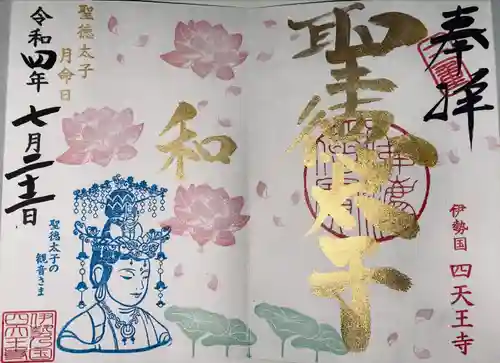 奉拝
聖徳太子
伊勢国 四天王寺
和
聖徳太子
月命日
令和四年
七月二十二日
聖徳太子の
観音さま